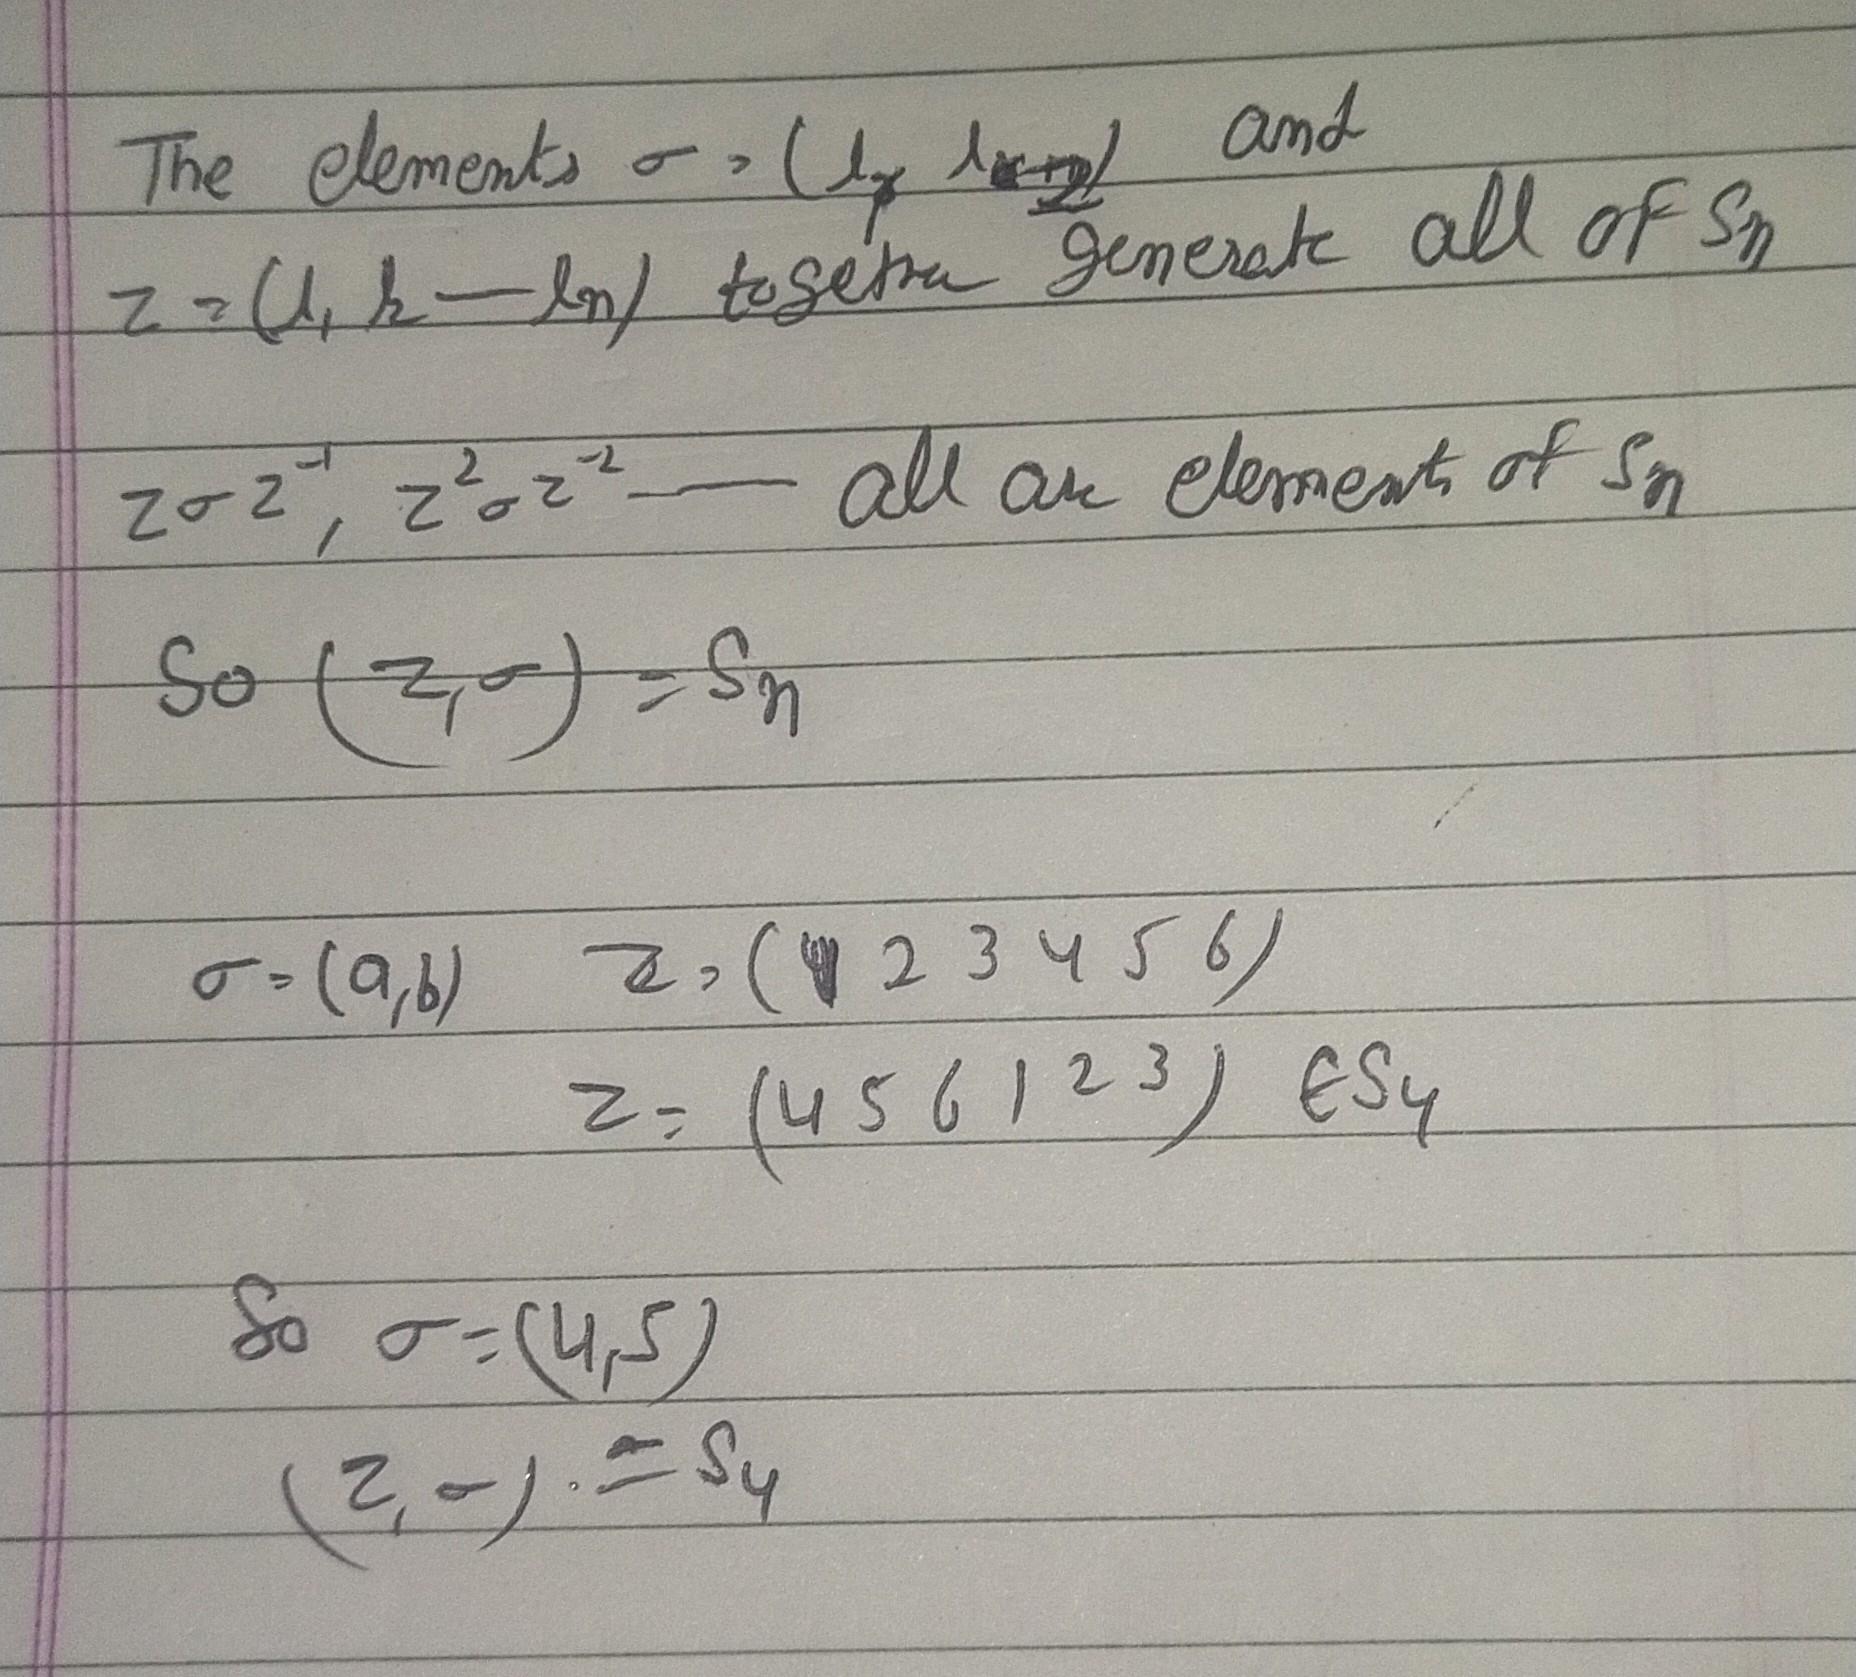 The elements σ = (l₁ l₂) and
z = (l₁ l₂ — ln) together generate all of Sn
zσz⁻¹, z²σz⁻² — all are elements of Sn
So (z,σ) = Sn
σ = (a,b) z = (1 2 3 4 5 6)
z = (4 5 6 1 2 3) ∈ S4
So σ = (4,5)
(z,σ) = S4